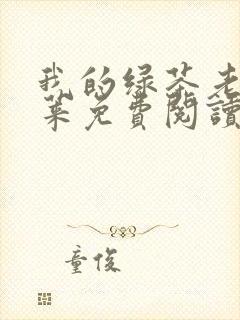 我的绿茶老
菜免费閱讀
童俊